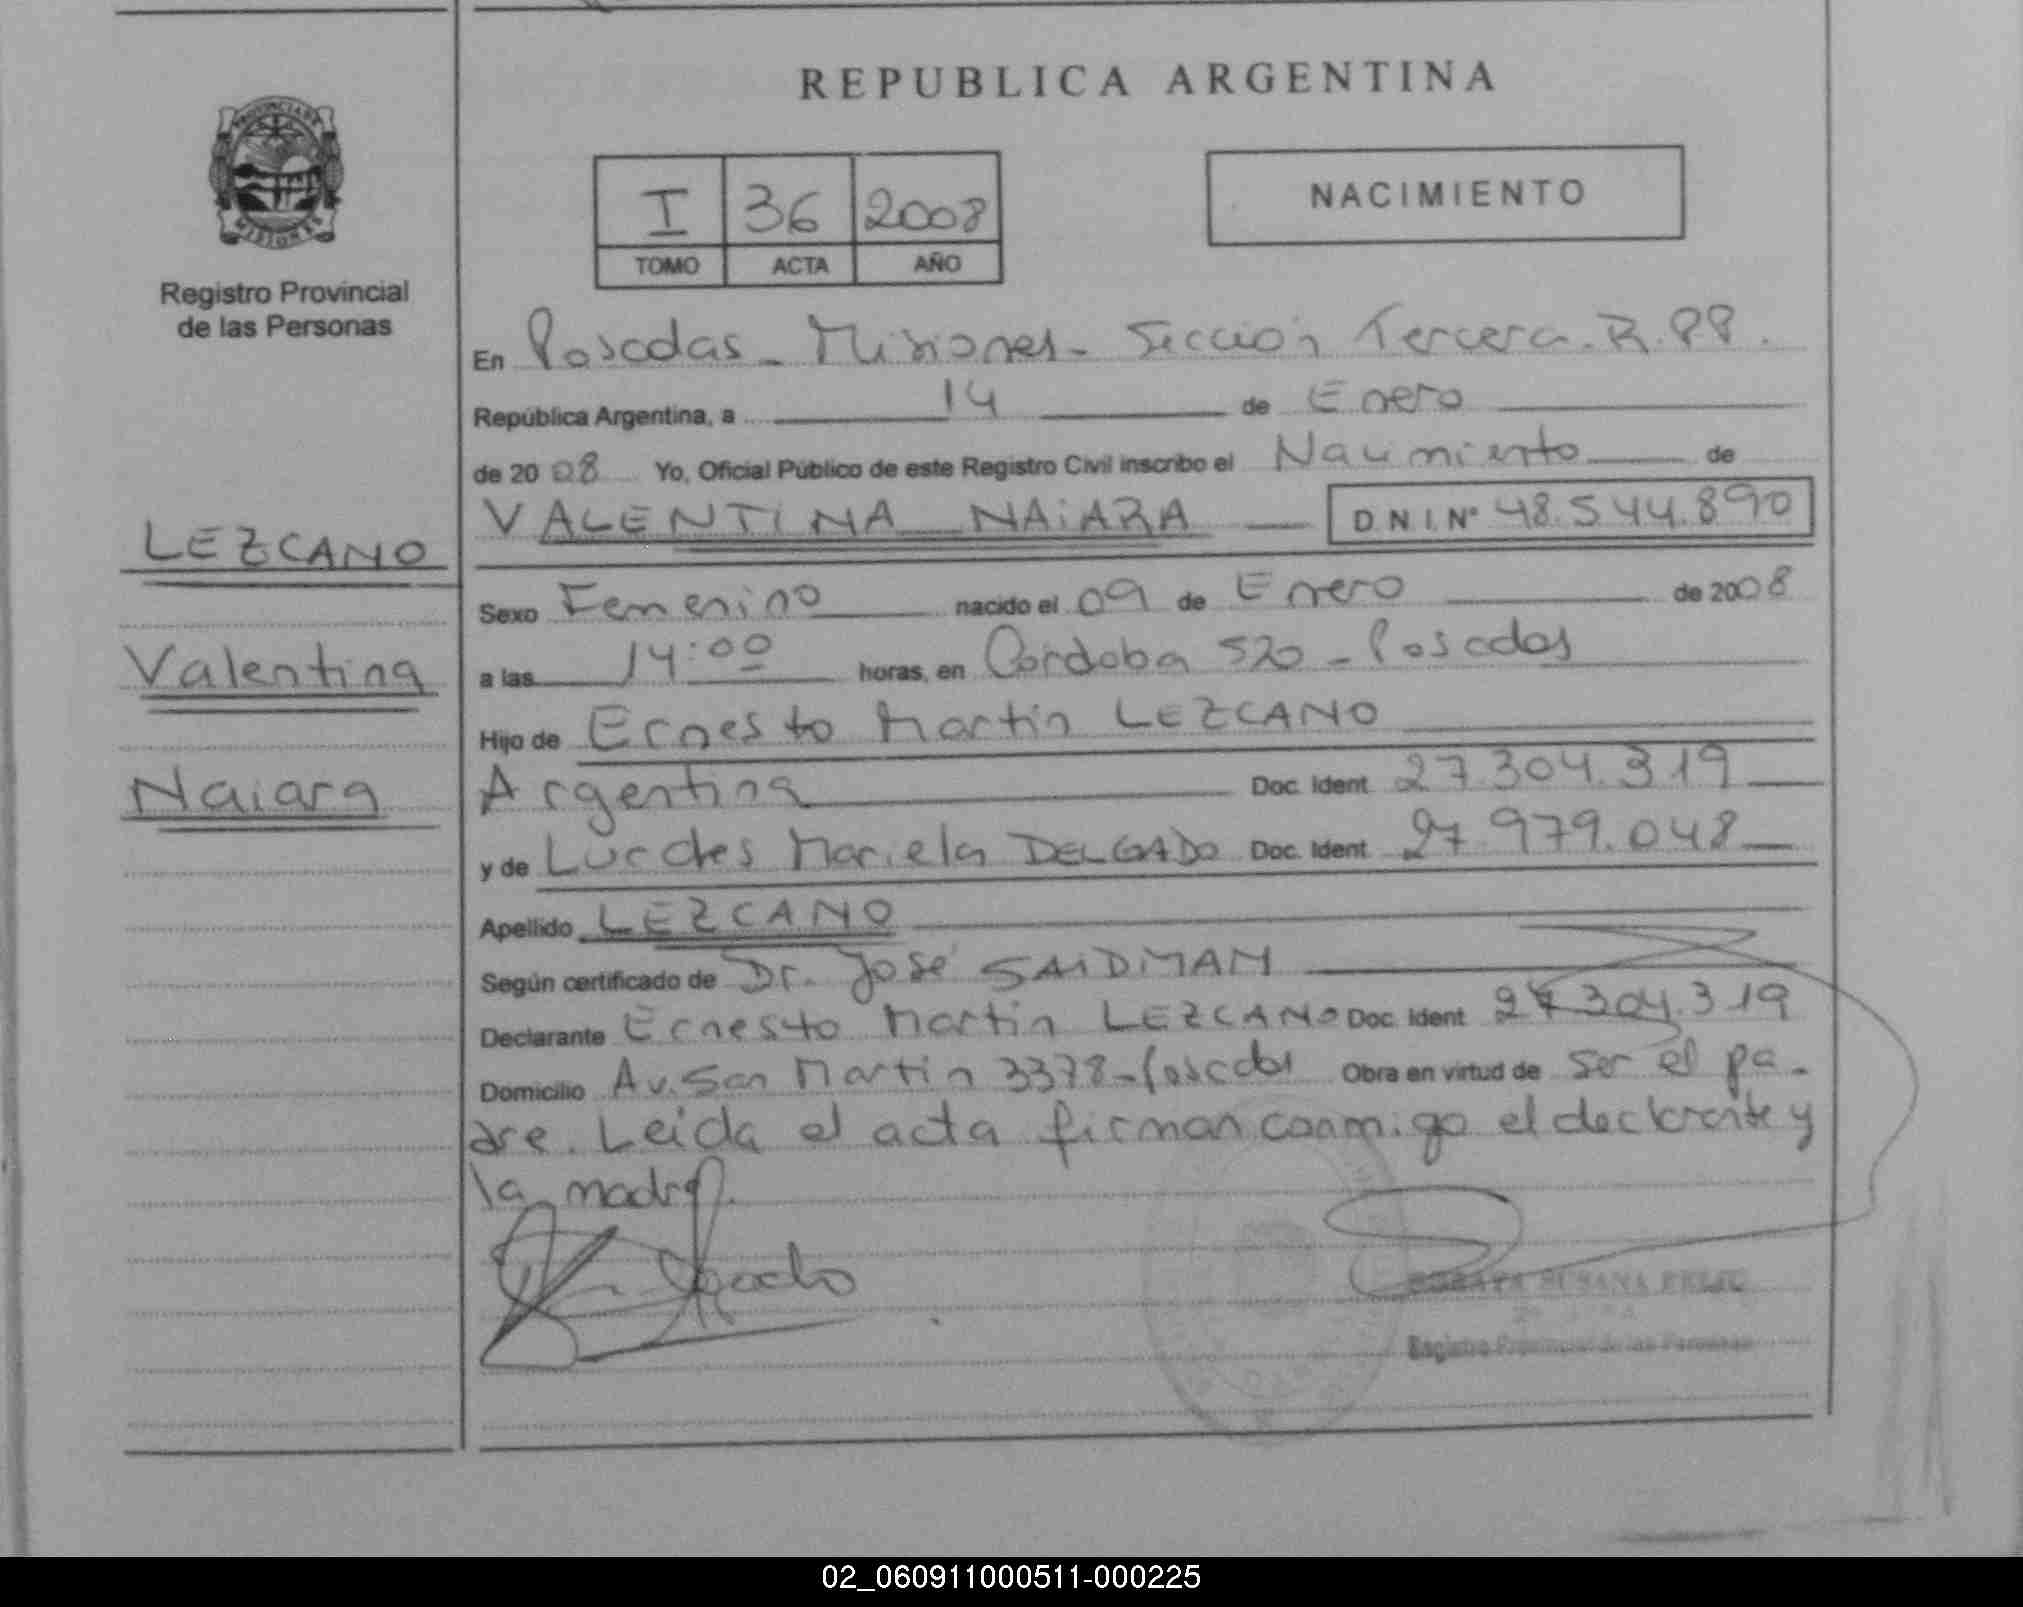 REPUBLICA ARGENTINA
PROVINCIA DE
MISIONES
Registro Provincial
de las Personas
I 36 2008
TOMO ACTA AÑO
NACIMIENTO
En Posadas - Misiones - Sección Tercera. R.PP.
República Argentina, a 14 de Enero
de 2008 Yo, Oficial Público de este Registro Civil inscribo el Nacimiento de
VALENTINA NAiARA D.N.I. Nº 48.544.890
LEZCANO
Valentina
Naiara
Sexo Femenino nacido el 09 de Enero de 2008
a las 14:00 horas, en Cordoba 520 - Posadas
Hijo de Ernesto Martin LEZCANO
Argentina Doc. Ident 27.304.319
y de Lurdes Mariela DELGADO Doc. Ident 27.979.048
Apellido LEZCANO
Según certificado de Dr. José SAiDMAN
Declarante Ernesto Martin LEZCANO Doc. Ident 27.304.319
Domicilio Av. San Martin 3378 - Posadas Obra en virtud de ser el pa-
dre. Leida el acta firman conmigo el declarante y
la madre.
SUSANA
Registro Provincial de las Personas
02_060911000511-000225